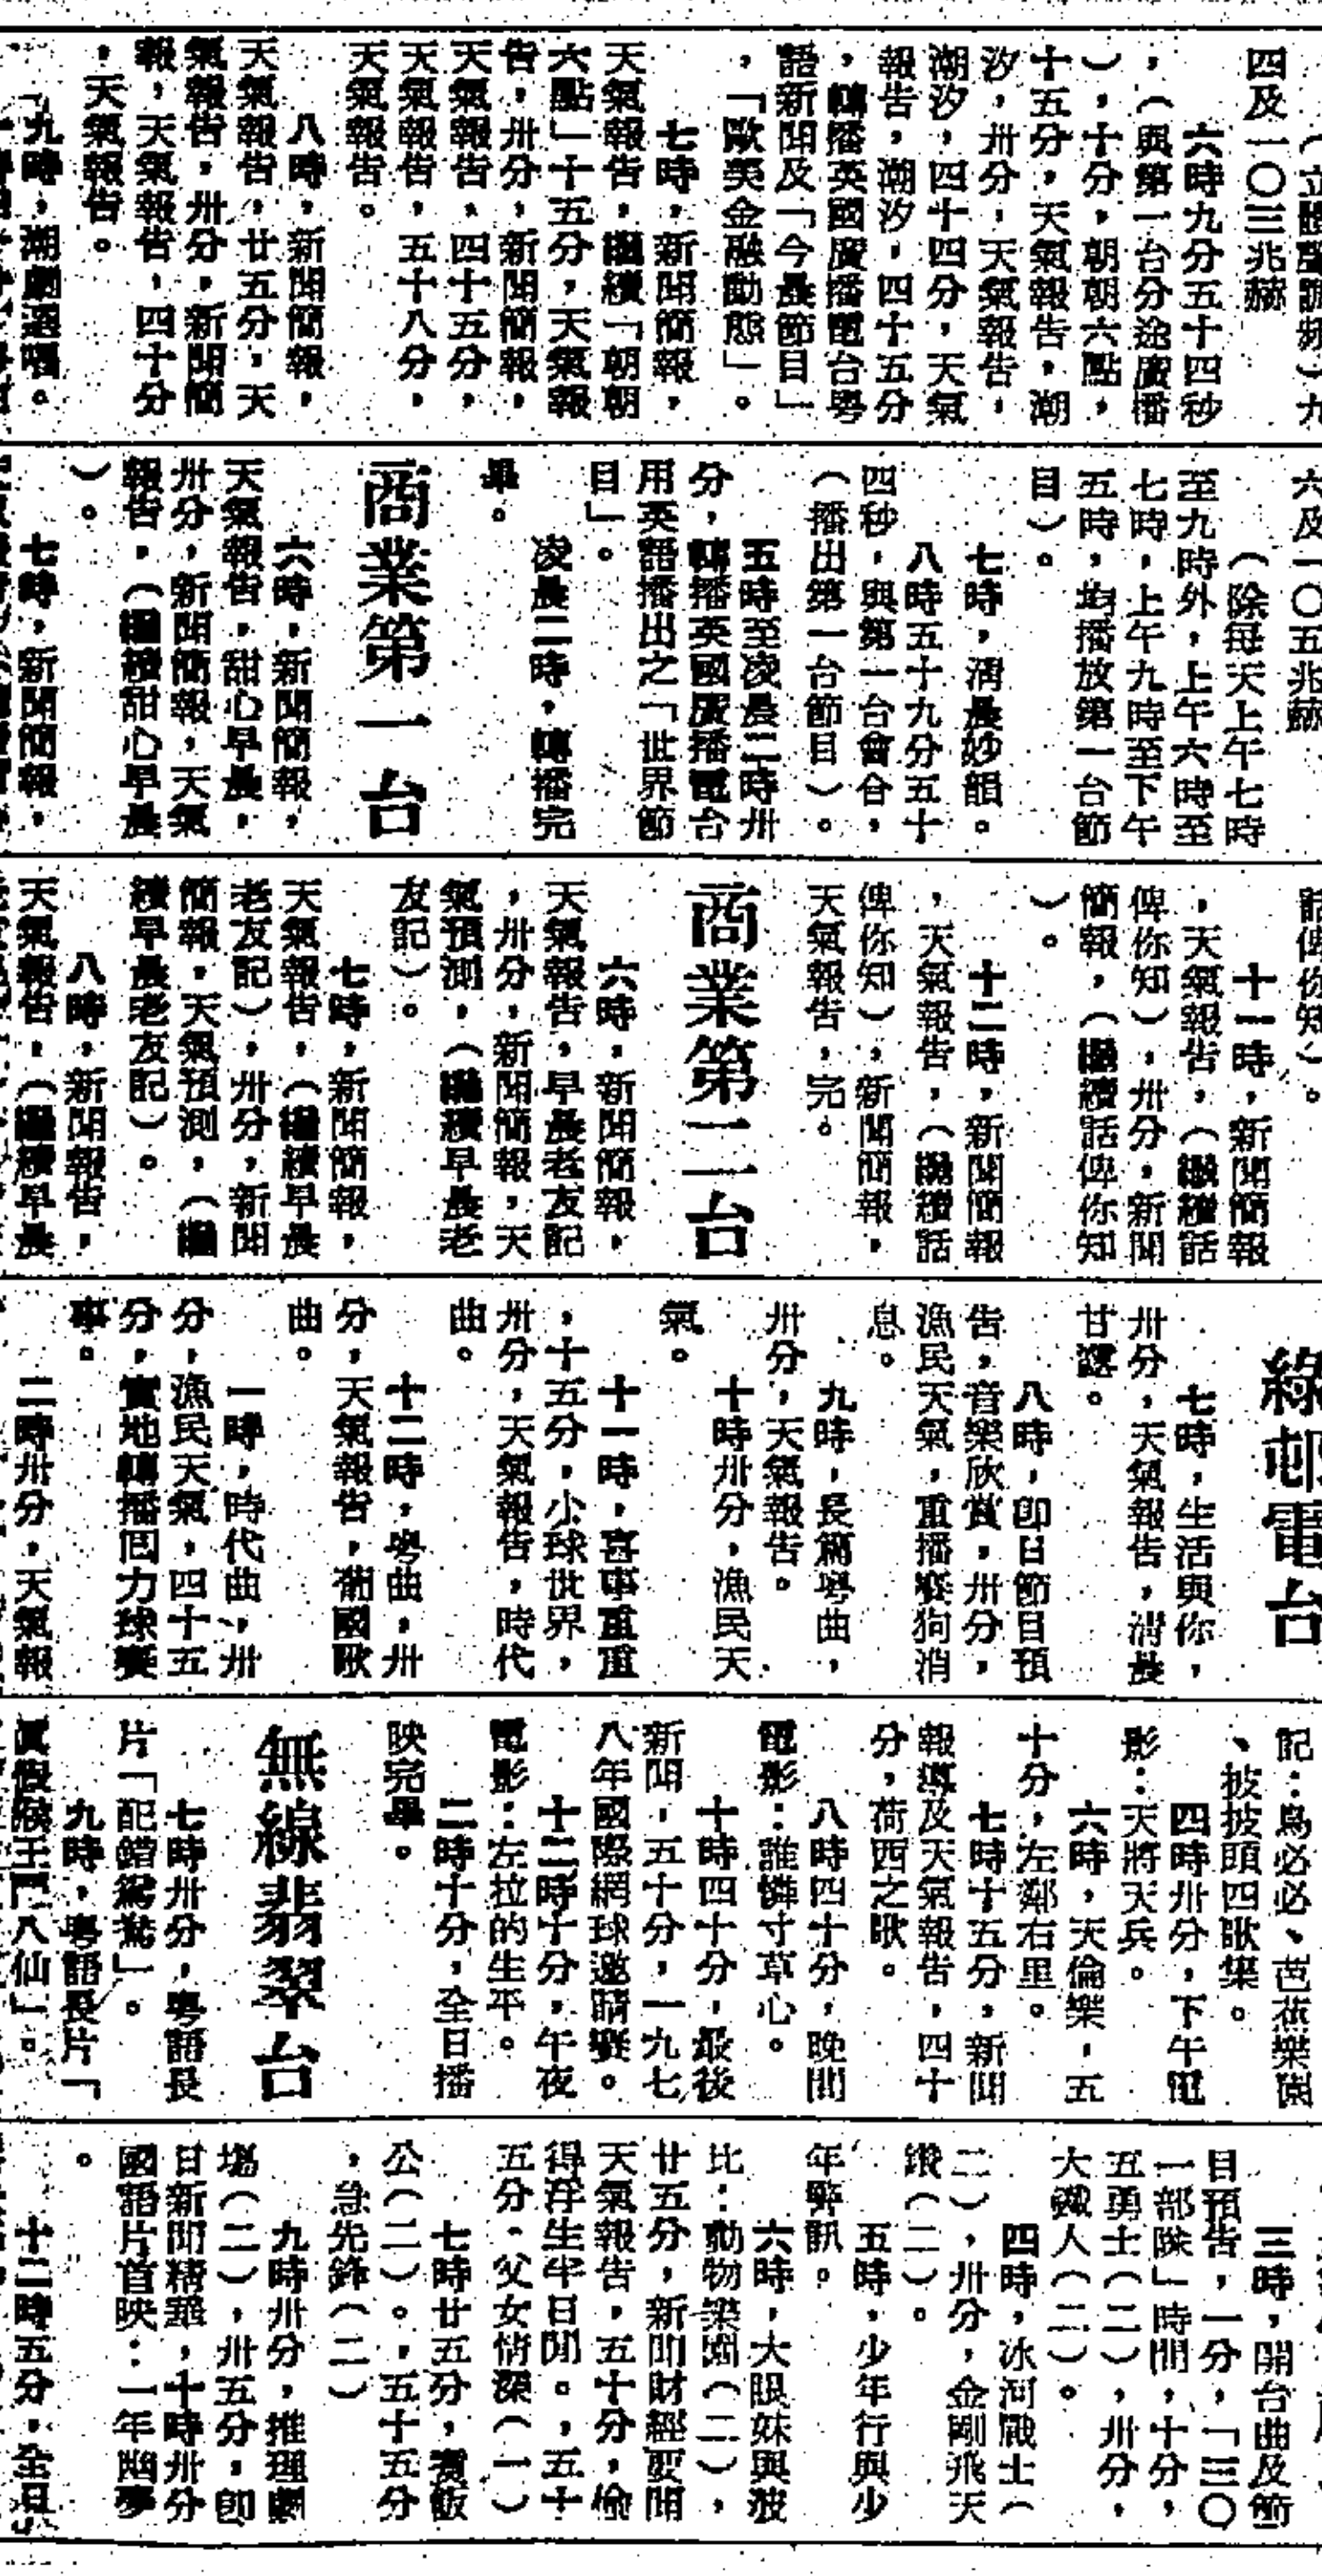 （立體聲調頻）九
四及一〇三兆赫
六時九分五十四秒
，（與第一台分途廣播
），十分，朝朝六點，
十五分，天氣報告，潮
汐，卅分，天氣報告，
潮汐，四十四分，天氣
報告，潮汐，四十五分
，轉播英國廣播電台粤
語新聞及「今晨節目」
，「歐美金融動態」。
七時，新聞簡報，
天氣報告，繼續「朝朝
六點」十五分，天氣報
告，卅分，新聞簡報，
天氣報告，四十五分，
天氣報告，五十八分，
天氣報告。
八時，新聞簡報，
天氣報告，廿五分，天
氣報告，卅分，新聞簡
報，天氣報告，四十分
，天氣報告。
九時，潮劇選唱。
六及一〇五兆赫
（除每天上午七時
至九時外，上午六時至
七時，上午九時至下午
五時，均播放第一台節
目）。
七時，清晨妙韻。
八時五十九分五十
四秒，與第一台會合，
（播出第一台節目）。
五時至凌晨二時卅
分，轉播英國廣播電台
用英語播出之「世界節
目」。
凌晨二時，轉播完
畢。
商業第一台
六時，新聞簡報，
天氣報告，甜心早晨，
卅分，新聞簡報，天氣
報告，（繼續甜心早晨
）。
七時，新聞簡報，
話俾你知）。
十一時，新聞簡報
，天氣報告，（繼續話
俾你知），卅分，新聞
簡報，（繼續話俾你知
）。
十二時，新聞簡報
，天氣報告，（繼續話
俾你知），新聞簡報，
天氣報告，完。
商業第二台
六時，新聞簡報，
天氣報告，早晨老友記
，卅分，新聞簡報，天
氣預測，（繼續早晨老
友記）。
七時，新聞簡報，
天氣報告，（繼續早晨
老友記），卅分，新聞
簡報，天氣預測，（繼
續早晨老友記）。
八時，新聞報告，
天氣報告，（繼續早晨
綠邨電台
七時，生活與你，
卅分，天氣報告，清晨
甘選。
八時，即日節目預
告，音樂欣賞，卅分，
漁民天氣，重播賽狗消
息。
九時，長篇粤曲，
卅分，天氣報告。
十時卅分，漁民天
氣。
十一時，喜事重重
，十五分，小球世界，
卅分，天氣報告，時代
曲。
十二時，粤曲，卅
分，天氣報告，葡國歌
曲。
一時，時代曲，卅
分，漁民天氣，四十五
分，實地轉播回力球賽
事。
二時卅分，天氣報
記：鳥必必、芭蕉樂園
、披披頭四歌集。
四時卅分，下午電
影：天將天兵。
六時，天倫樂，五
十分，左鄰右里。
七時十五分，新聞
報導及天氣報告，四十
分，荷西之歌。
八時四十分，晚間
電影：誰憐寸草心。
十時四十分，最後
新聞，五十分，一九七
八年國際網球邀請賽。
十二時十分，午夜
電影：左拉的生平。
二時十分，全日播
映完畢。
無線翡翠台
七時卅分，粤語長
片「配錯鴛鴦」。
九時，粤語長片「
眞假猴王鬥八仙」。
三時，開台曲及節
目預告，一分，「三〇
一部隊」時間，十分，
五勇士（二），卅分，
大鐵人（二）。
四時，冰河戰士（
二），卅分，金剛飛天
鑽（二）。
五時，少年行與少
年警訊。
六時，大眼妹與波
比：動物樂園（二），
廿五分，新聞財經要聞
天氣報告，五十分，偷
得浮生半日閒。，五十
五分，父女情深（一）
七時廿五分，賣飯
公（二）。，五十五分
，急先鋒（二）
九時卅分，推理劇
場（二），卅五分，即
日新聞精華，十時卅分
國語片首映：一年幽夢
。
十二時五分，全日